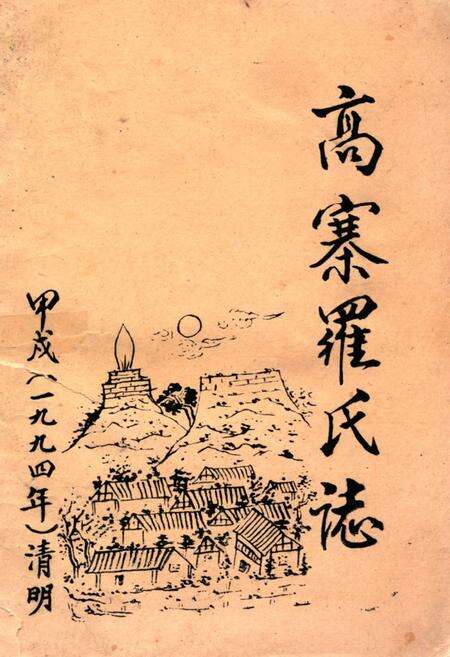 高寨羅氏誌
甲戌(一九九四年)清明